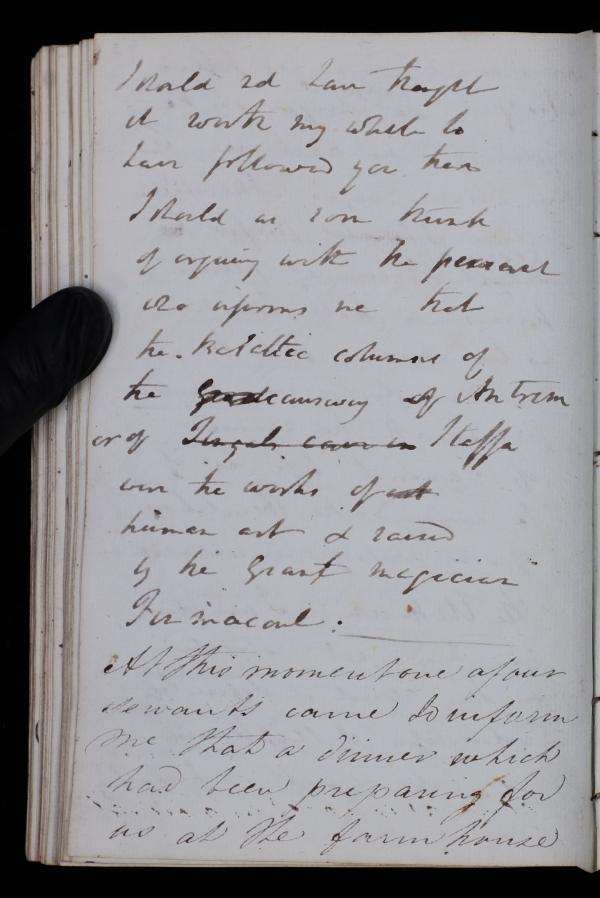 I should not have thought
it worth my while to
have followed you there
I should as soon think
of arguing with the peasant
who informs me that
the Basaltic columns of
the causeway of Antrim
or of Fingals cave in Staffa
were the works of
human art & raised
by the Giant magician
Finmacoul.
At this moment one of our
servants came to inform
me that a dinner which
had been preparing for
us at the farm house